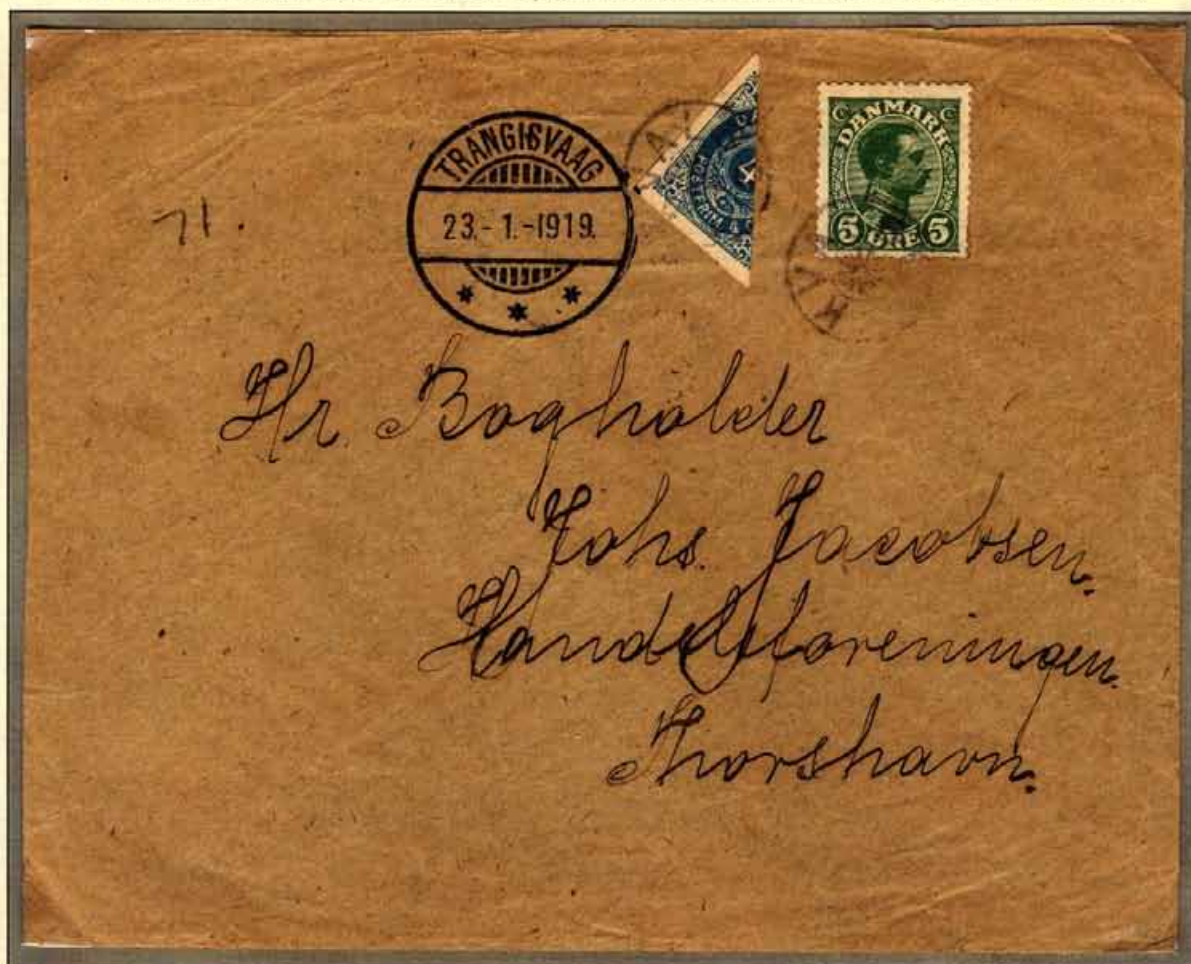 TRANGISVAAG
23.-1.-1919.
DANMARK
5 ØRE 5
71.
Hr. Bogholder
Johs. Jacobsen.
Handelsforeningen.
Thorshavn.